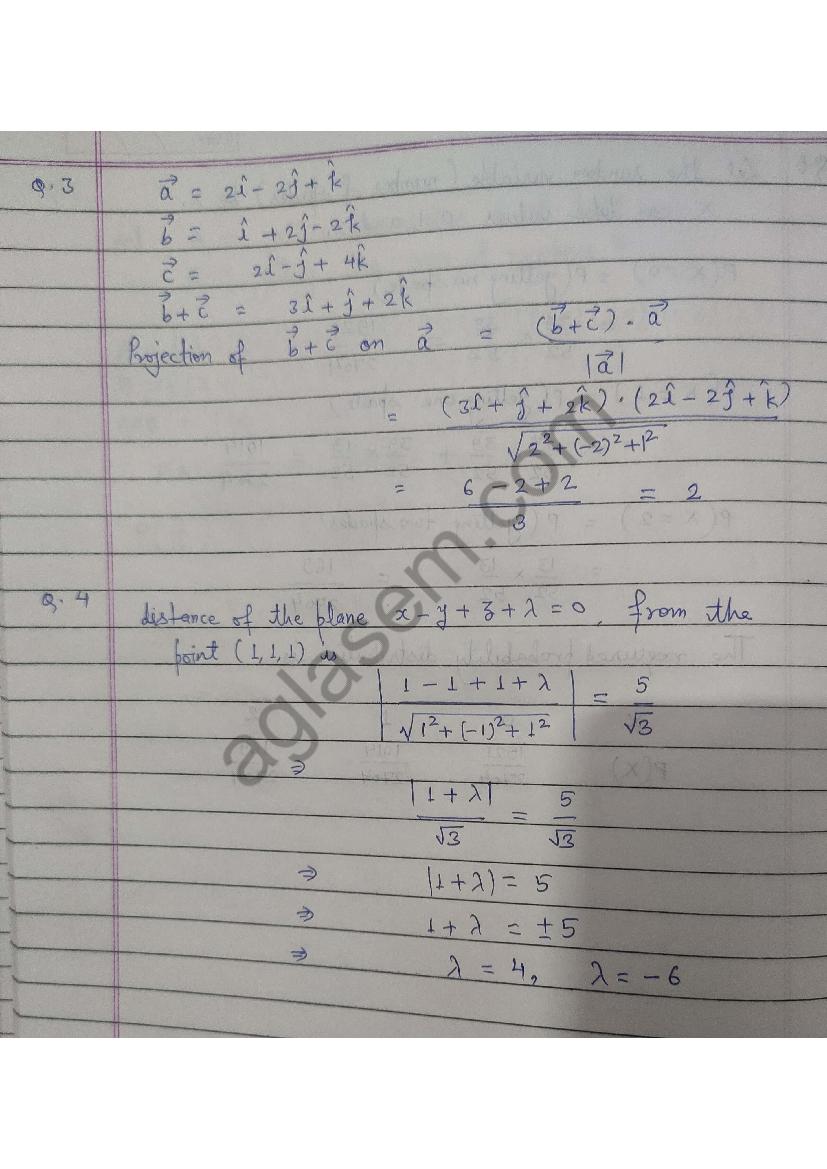 Q.3 a⃗ = 2î - 2ĵ + k̂
b⃗ = î + 2ĵ - 2k̂
c⃗ = 2î - ĵ + 4k̂
b⃗ + c⃗ = 3î + ĵ + 2k̂
Projection of b⃗ + c⃗ on a⃗ = (b⃗ + c⃗) · a⃗ / |a⃗|
= (3î + ĵ + 2k̂) · (2î - 2ĵ + k̂) / √(2² + (-2)² + 1²)
= (6 - 2 + 2) / 3 = 2
Q.4 distance of the plane x - y + z + λ = 0, from the
point (1, 1, 1) is
|(1 - 1 + 1 + λ) / √(1² + (-1)² + 1²)| = 5/√3
⇒
|1 + λ| / √3 = 5/√3
⇒ |1 + λ) = 5
⇒ 1 + λ = ± 5
⇒ λ = 4, λ = - 6
aglasem.com